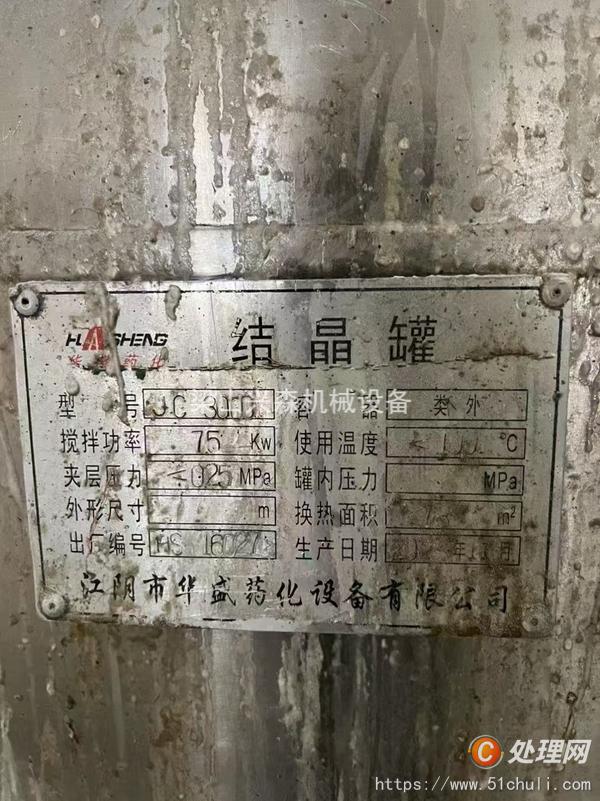 HUASHENG 结晶罐
华盛药化
型号 JC 300 容器 类外
兴森机械设备
搅拌功率 75 Kw 使用温度 ℃
夹层压力 025 MPa 罐内压力 MPa
外形尺寸 m 换热面积 m²
出厂编号 HS 16027 生产日期 年 月
江阴市华盛药化设备有限公司
C 处理网
https://www.51chuli.com